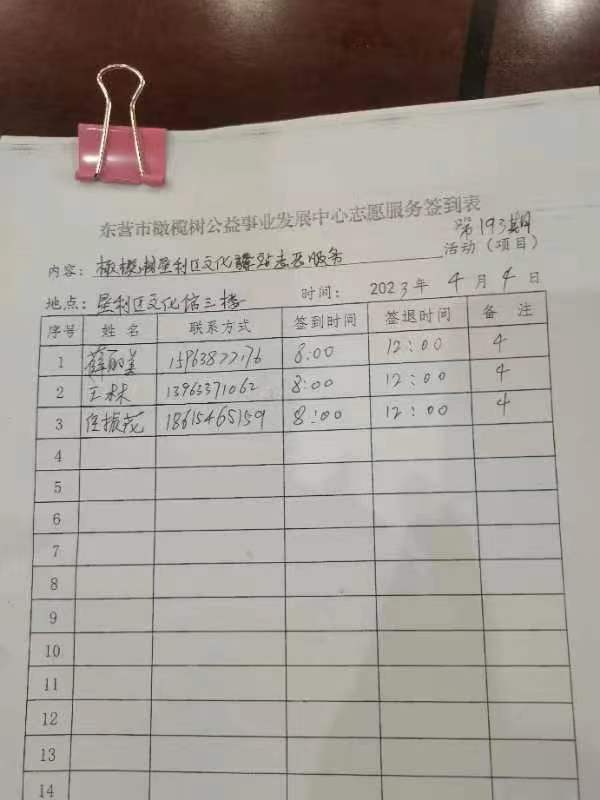 东营市橄榄树公益事业发展中心志愿服务签到表
第193期
内容：橄榄树垦利区文化驿站志愿服务 活动（项目）
地点：垦利区文化馆三楼 时间：2023年4月4日
序号 姓名 联系方式 签到时间 签退时间 备注
1 薛丽美 15963822176 8:00 12:00 4
2 王林 13963371062 8:00 12:00 4
3 任振花 18615465159 8:00 12:00 4
4
5
6
7
8
9
10
11
12
13
14